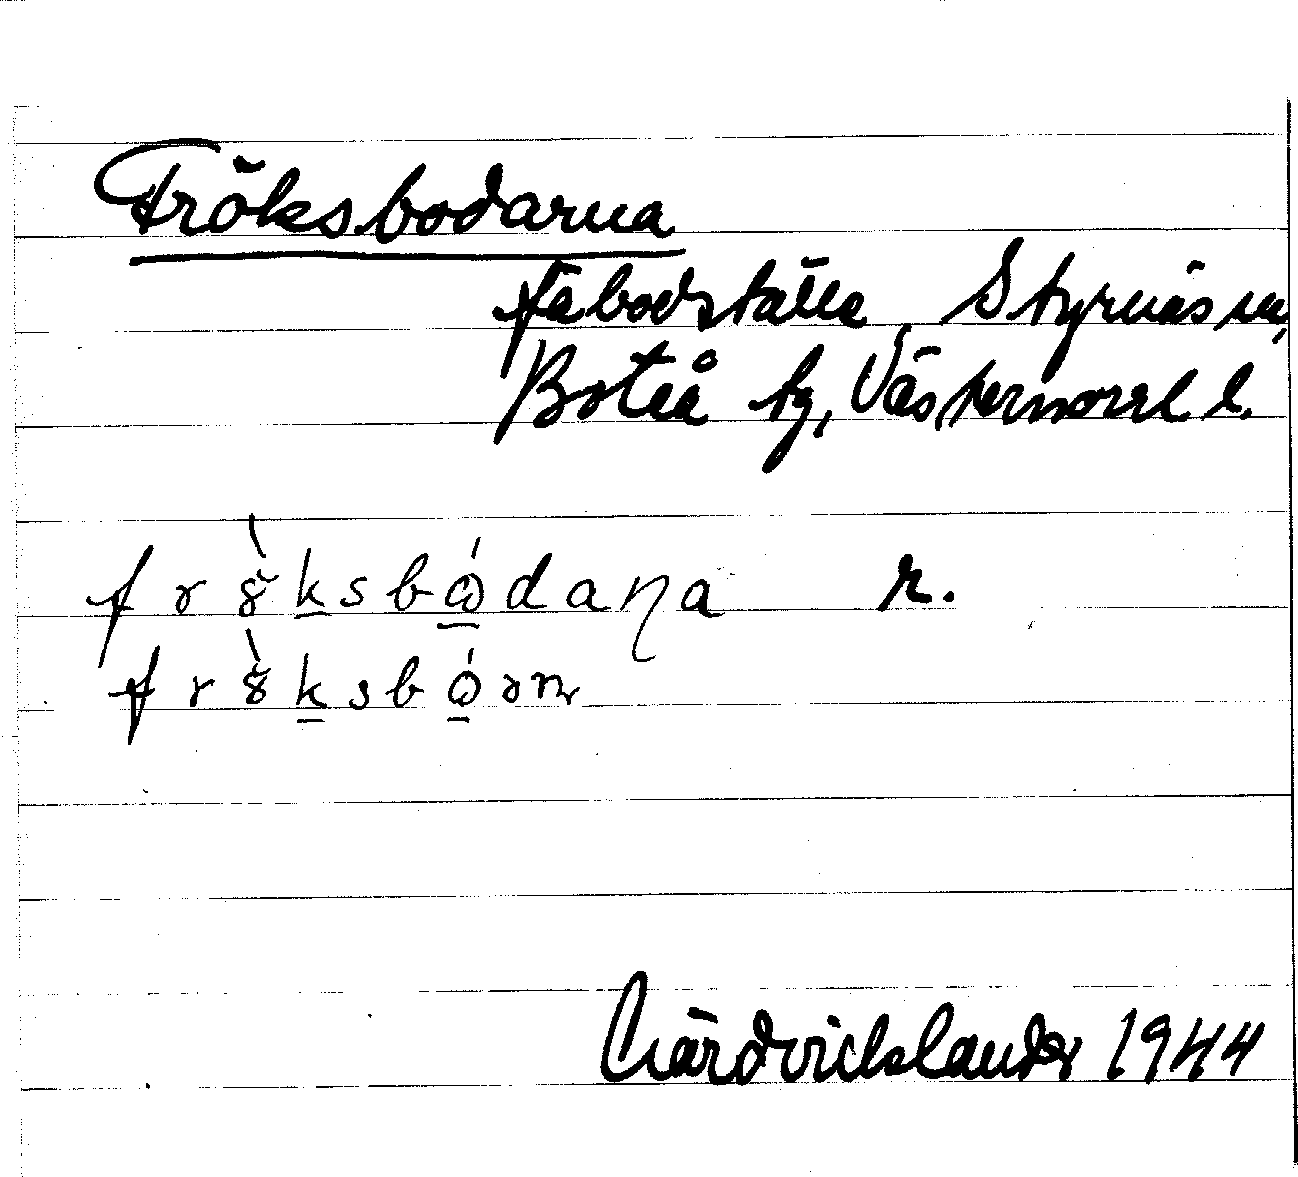 Fröksbodarna
fäbodställe, Styrnäs sn,
Boteå tg, Västernorrl l.
frö̀ksbɷ́daɳa r.
frö̀ksbɷ́ərn
Härdvickslander 1944